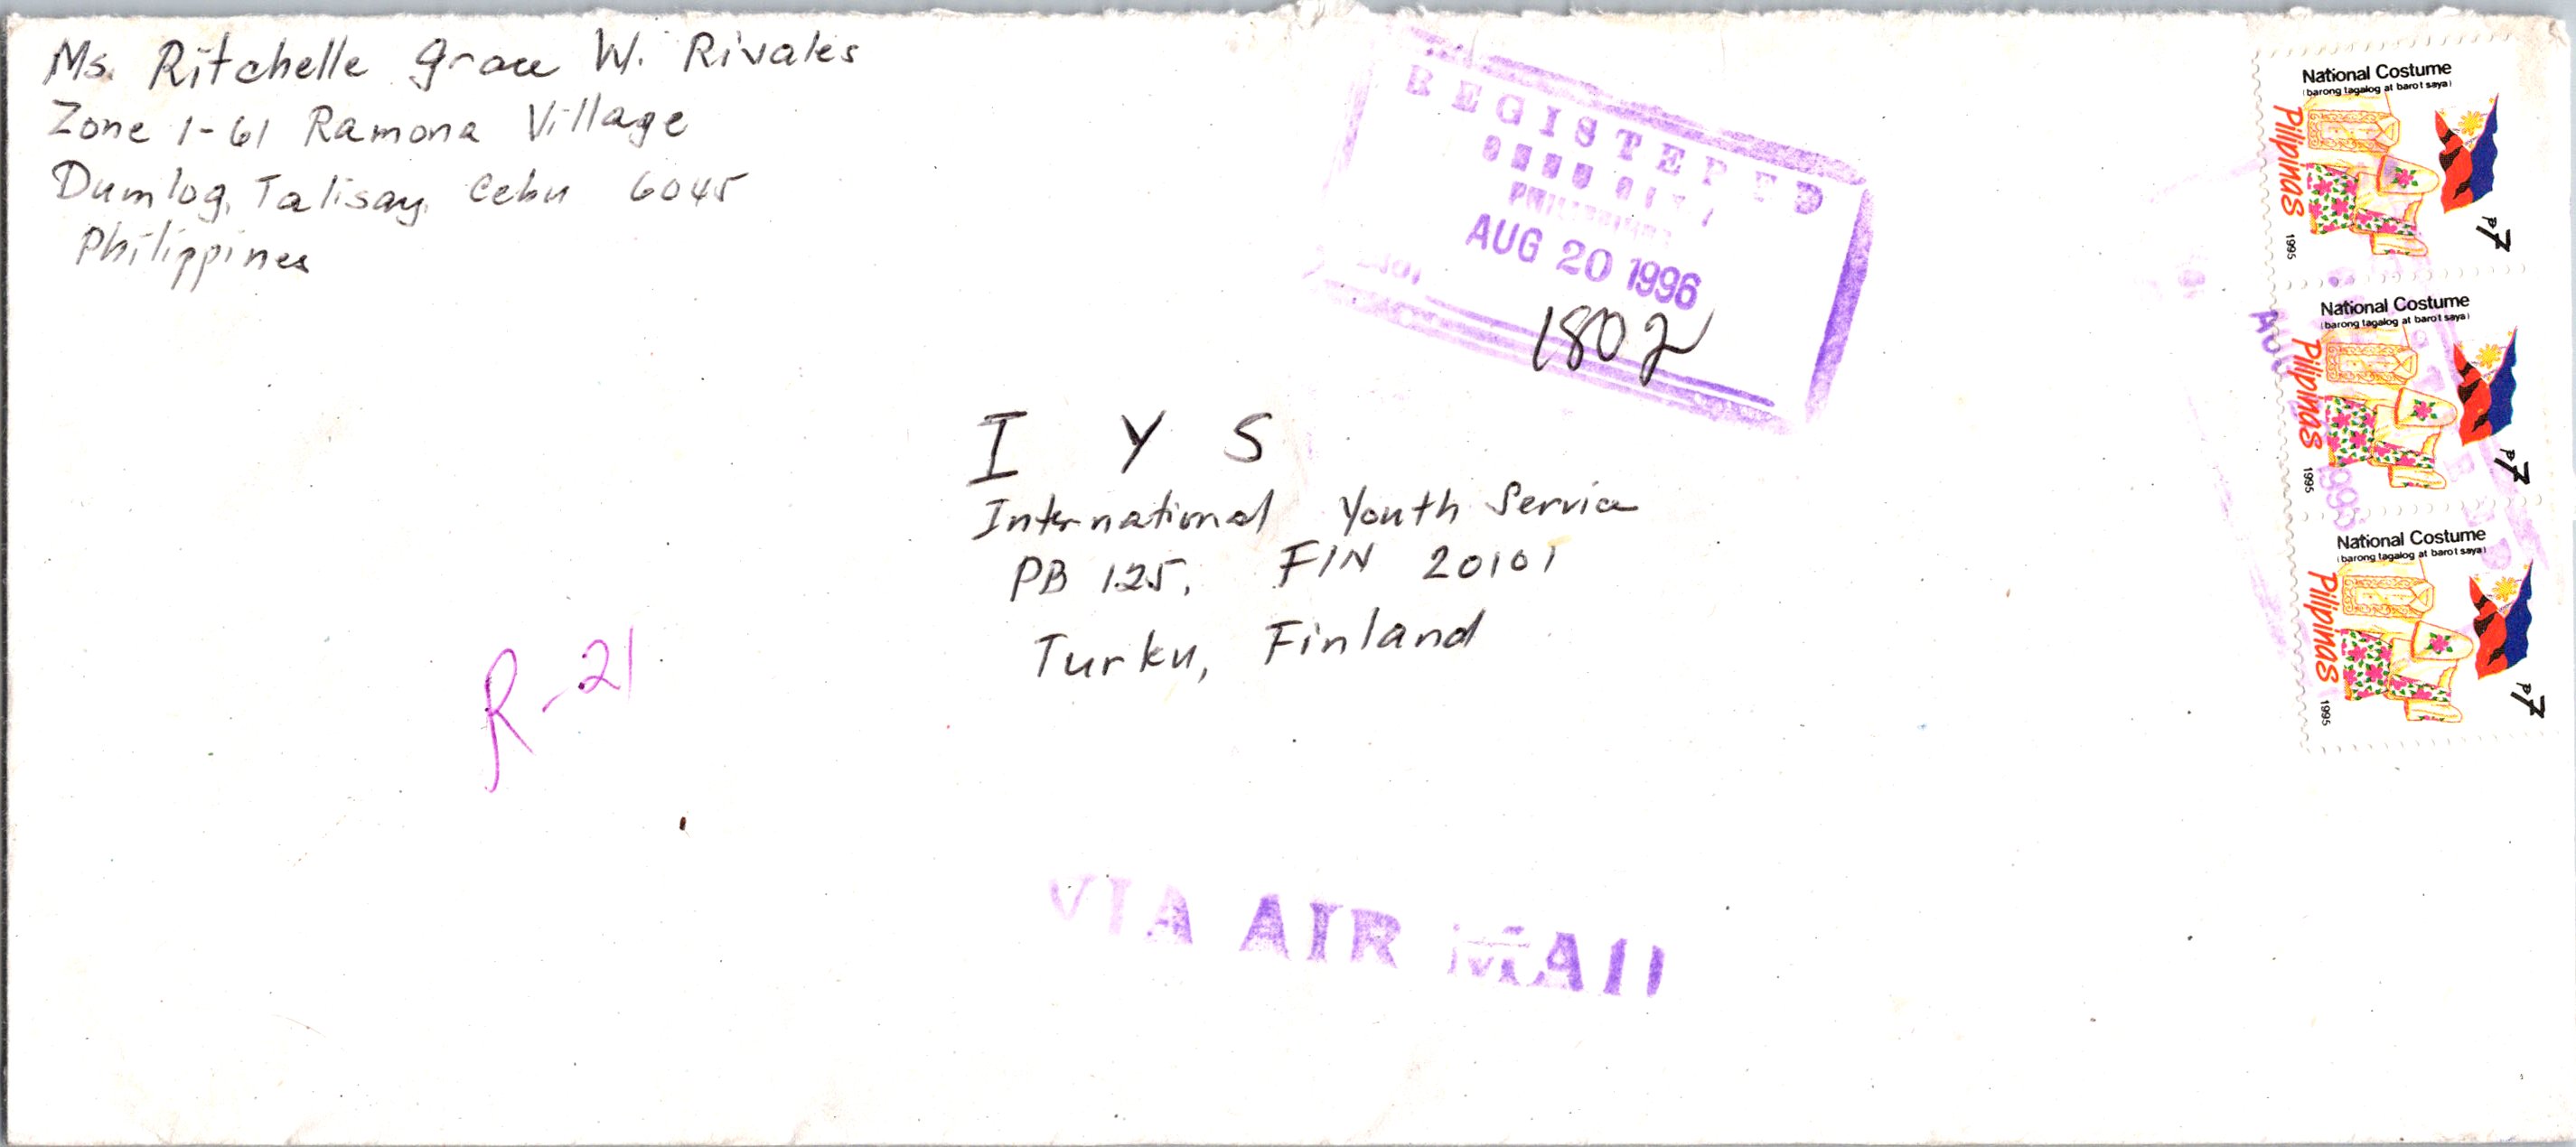 Ms. Ritchelle Grace W. Rivales
Zone 1-61 Ramona Village
Dumlog, Talisay, Cebu 6045
Philippines
REGISTERED
PHILIPPINES
AUG 20 1996
1802
I Y S
International Youth Service
PB 125, FIN 20101
Turku, Finland
R-21
VIA AIR MAIL
National Costume
(barong tagalog at baro't saya)
Pilipinas
1995
P7
National Costume
(barong tagalog at baro't saya)
Pilipinas
1995
P7
National Costume
(barong tagalog at baro't saya)
Pilipinas
1995
P7